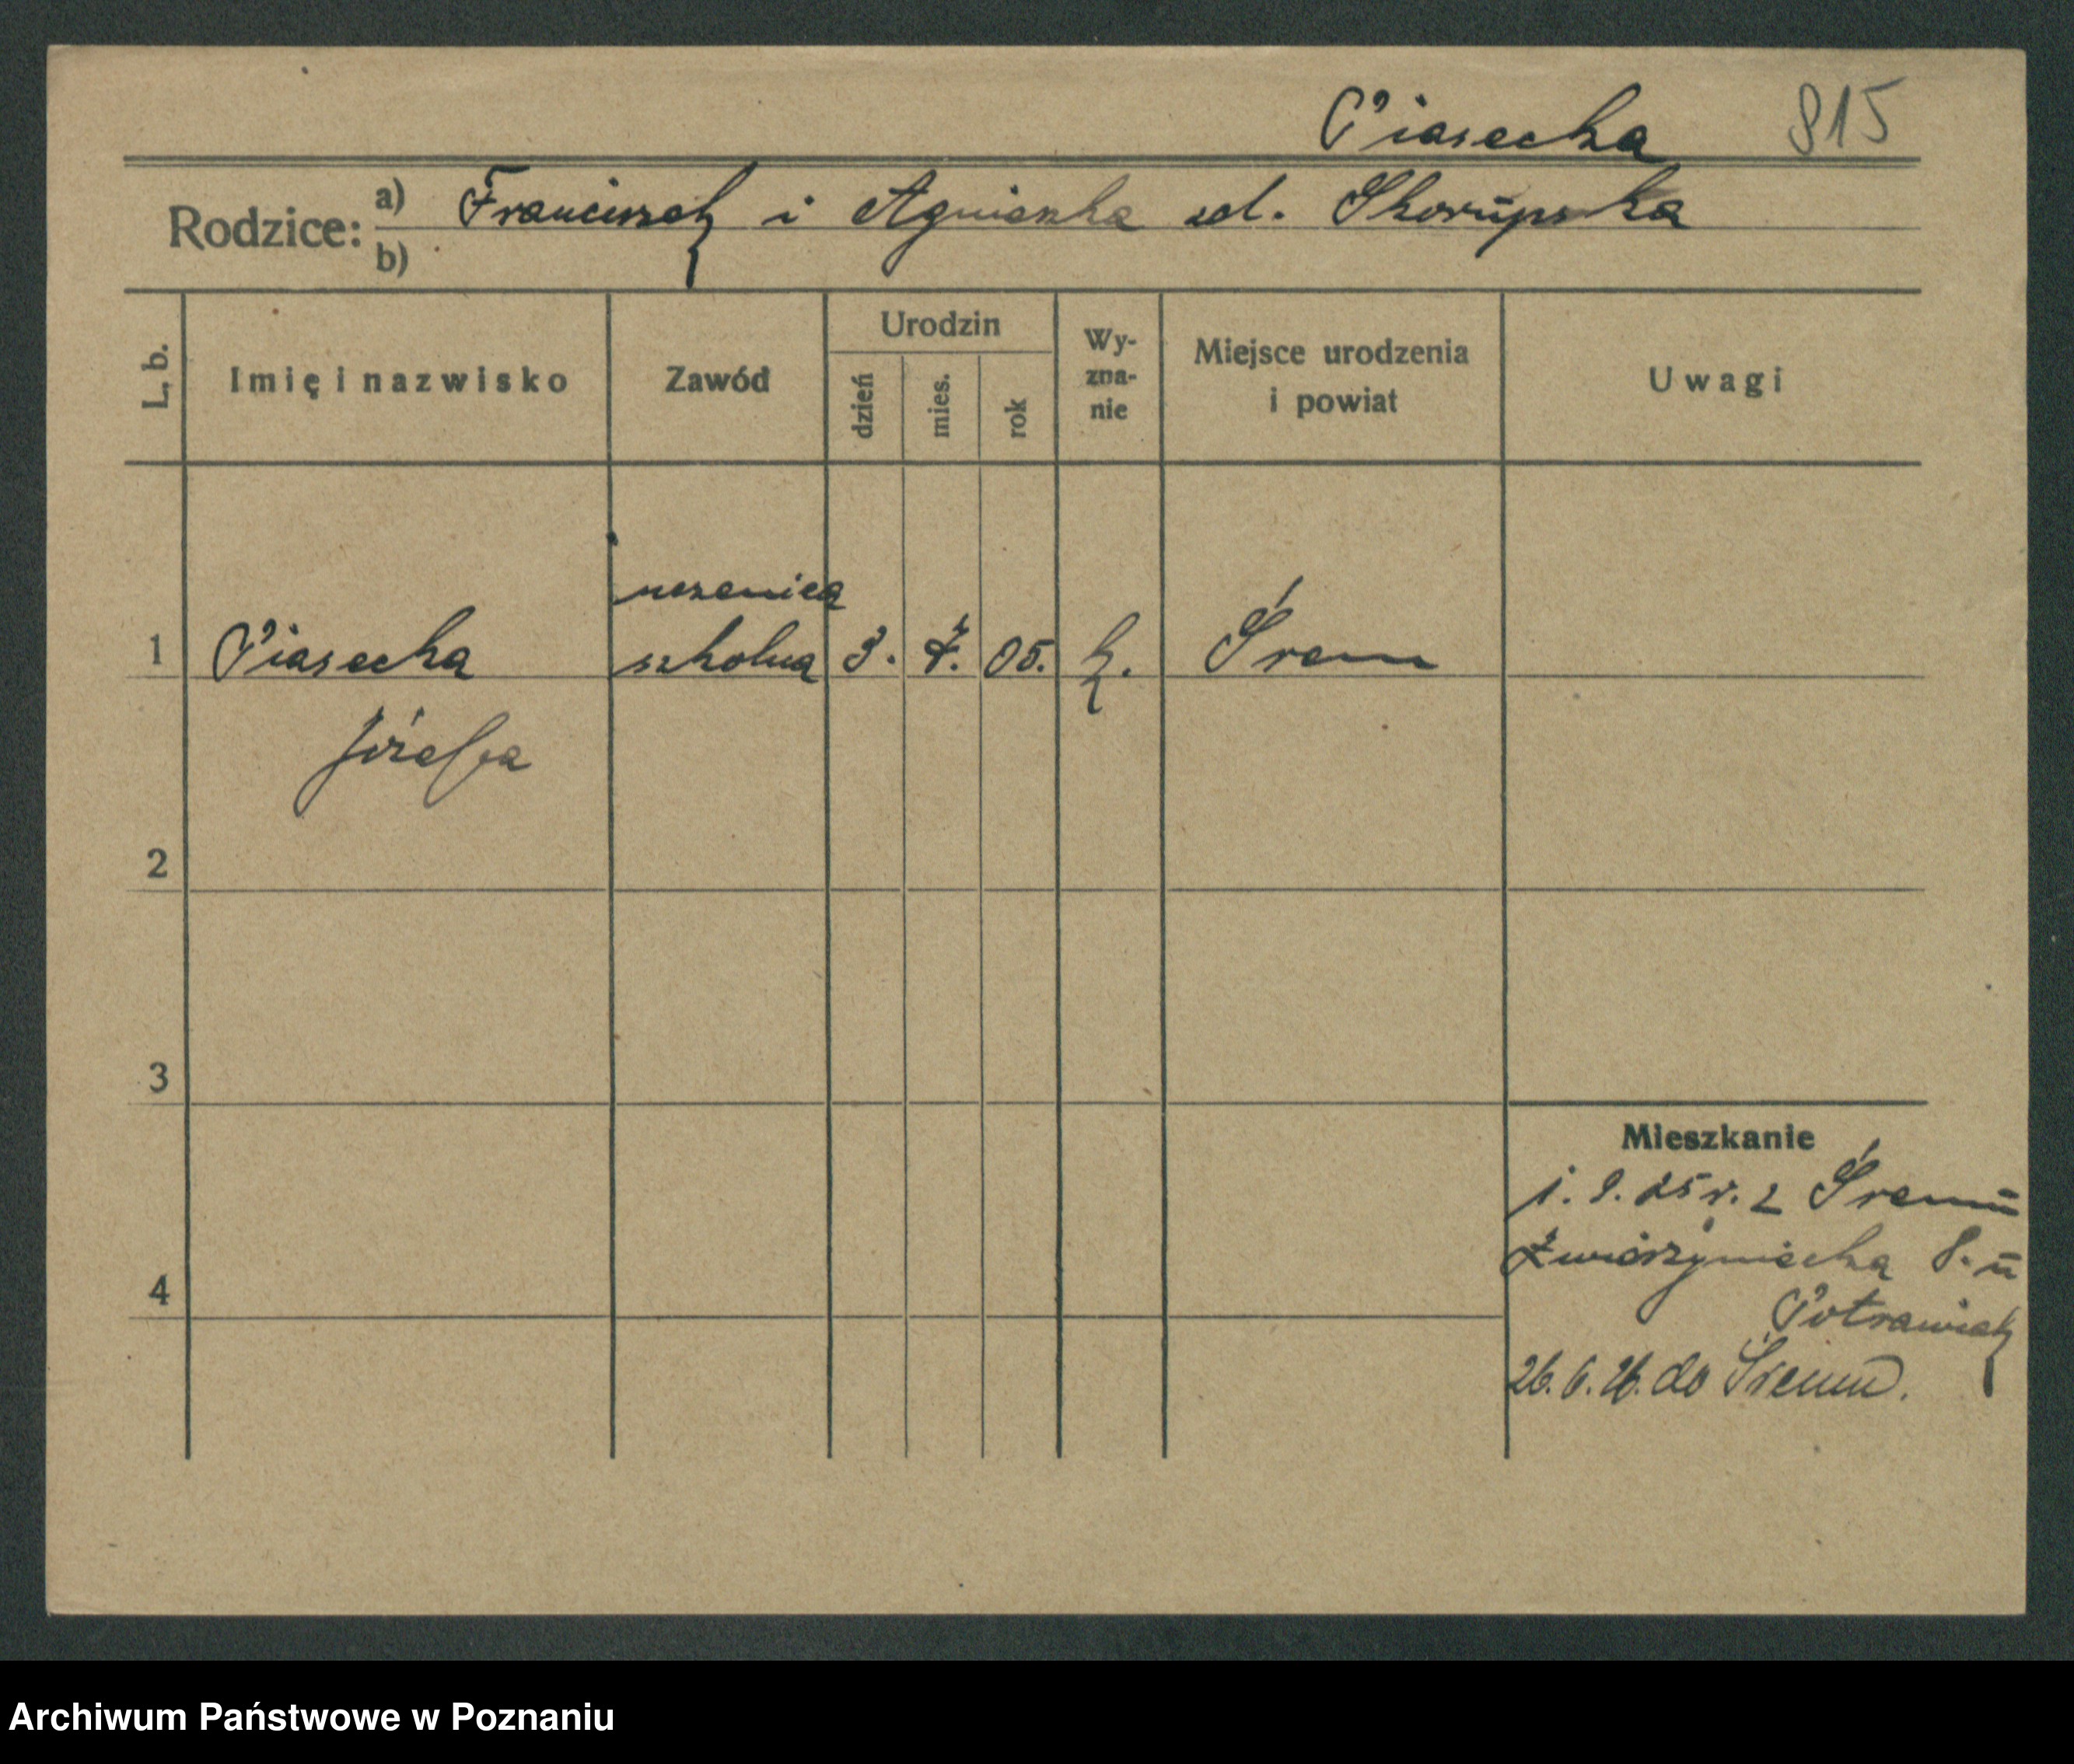 Piasecka 815
Rodzice: a) Franciszek i Agnieszka zd. Skorupska
b)
L. b. Imię i nazwisko Zawód Urodzin dzień mies. rok Wy-zna-nie Miejsce urodzenia i powiat Uwagi
uczenica
1 Piasecka szkolna 3. 7. 05. k. Śrem
Józefa
2
3
Mieszkanie
1. 9. 25 r. z Śremu
Zwierzyniecka 8. u
4
Potrawiak
26. 6. 26. do Śremu.
Archiwum Państwowe w Poznaniu